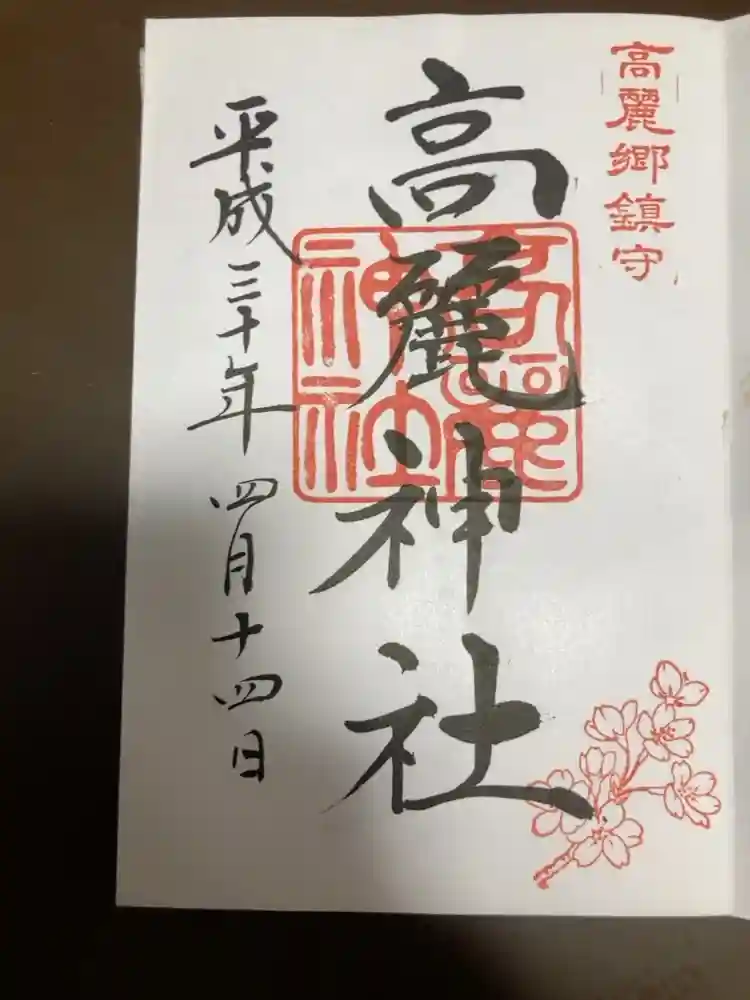 高麗郷鎮守
高麗神社
高麗神社
平成三十年四月十四日